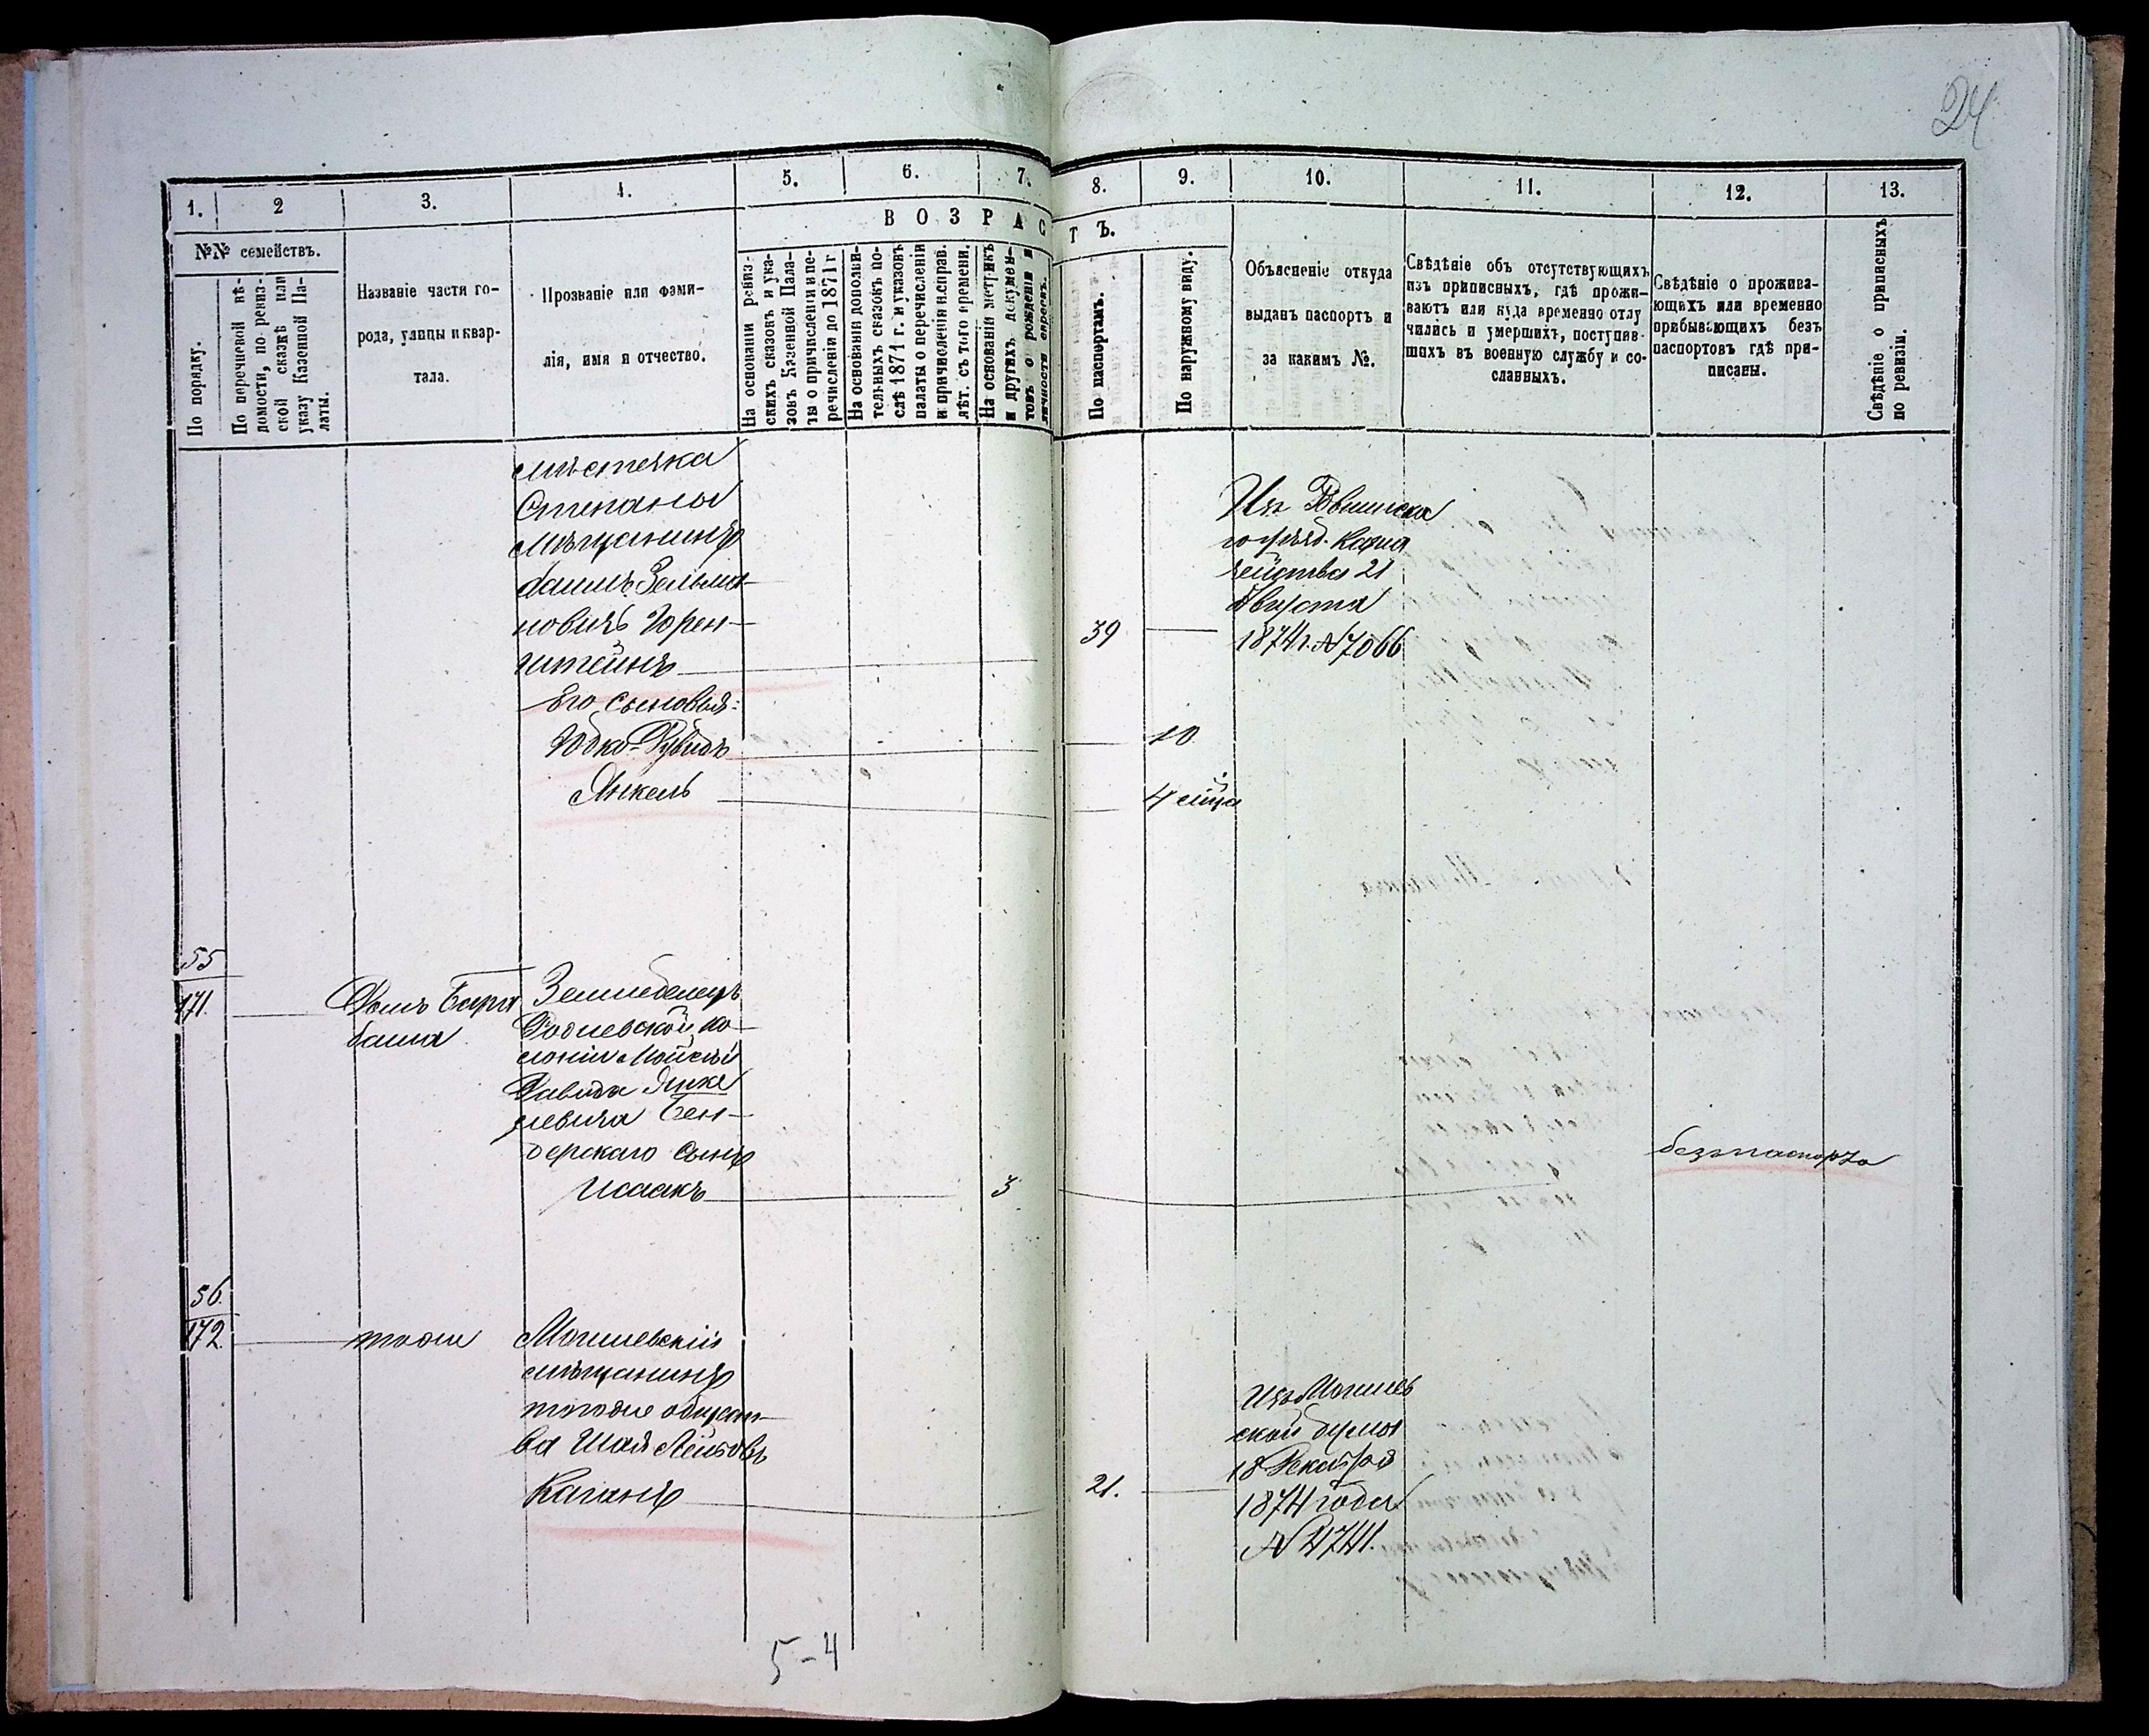 24
1. 2 3. 4. 5. 6. 7. 8. 9. 10. 11. 12. 13.
№№ семействъ.
ВОЗРАСТЪ.
По порядку.
По перечневой вѣ-
домости, по ревиз-
ской сказкѣ или
указу Казенной Па-
латы.
Названіе части го-
рода, улицы и квар-
тала.
Прозваніе или фами-
лія, имя и отчество.
На основаніи ревиз-
скихъ сказокъ и ука-
зовъ Казенной Пала-
ты о причисленіи и пе-
речисленіи до 1871 г
На основаніи дополни-
тельныхъ сказокъ по-
слѣ 1871 г. и указовъ
палаты о перечисленіи
и причисленіи и справ.
лѣт. съ того времени.
На основаніи метрикъ
и другихъ докумен-
товъ о рожденіи и
личности евреевъ.
По паспортамъ.
По наружному виду.
Объясненіе откуда
выданъ паспортъ и
за какимъ №.
Свѣдѣніе объ отсутствующихъ
изъ приписныхъ, гдѣ прожи-
ваютъ или куда временно отлу
чились и умершихъ, поступив-
шихъ въ военную службу и со-
сланныхъ.
Свѣдѣніе о прожива-
ющихъ или временно
прибывающихъ безъ
паспортовъ гдѣ при-
писаны.
Свѣдѣніе о приписныхъ
по ревизіи.
мѣстечка
Степаны
мѣщанинъ
Зельма-
новичъ Горен-
штейнъ
39
Изъ
Казна
чейства 21
Августа
1874 г. № 7066
Его сыновья:
10
Янкель
4 мѣца
55
171.
Домъ Бара
баша
Землѣделецъ
колоніи Мойсѣй
Давида Янке
левича Бен-
дерскаго сынъ
Исаакъ
3
безъ паспорта
56.
172.
тоже
Могилевскій
мѣщанинъ
тогоже общест-
ва Шая Лейбовъ
Каганъ
21.
Изъ Могилев
ской думы
18 Декабря
1874 года
№ 4741.
5-4